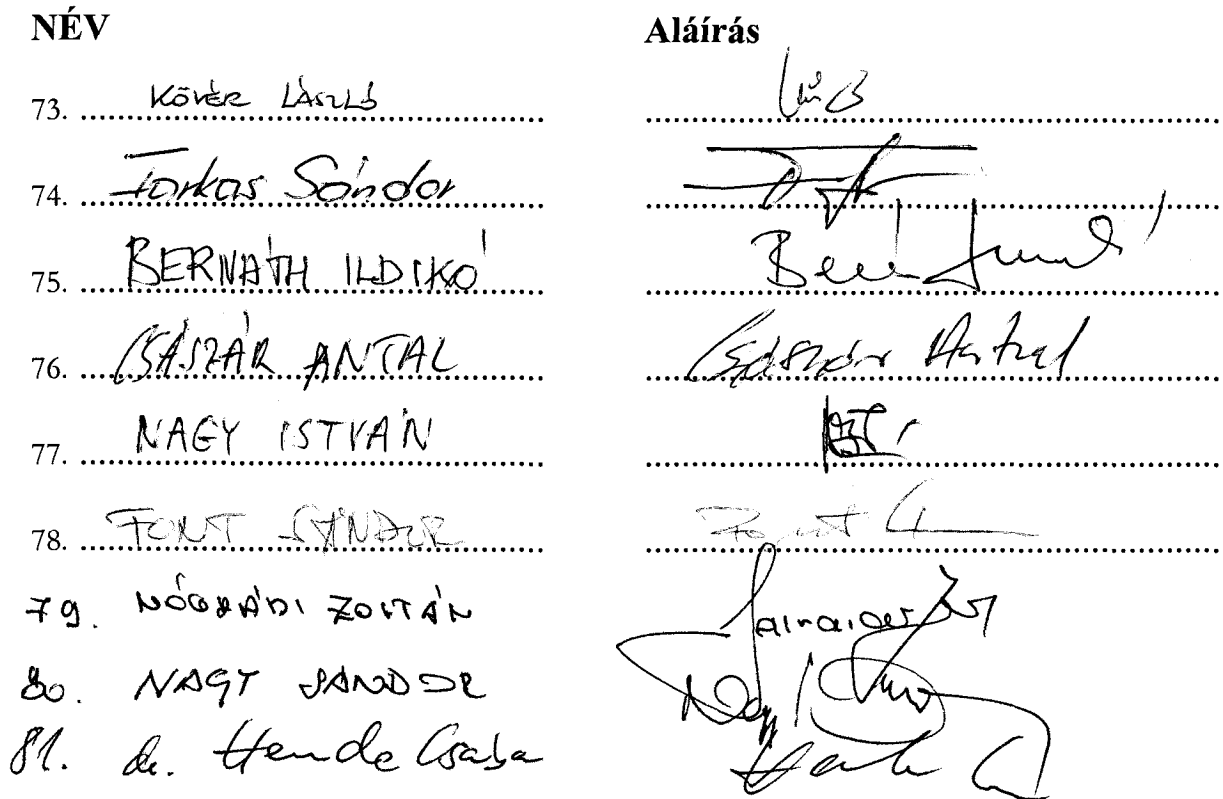 NÉV Aláírás
73. KÖVÉR LÁSZLÓ
74. Farkas Sándor
75. BERNÁTH ILDIKÓ
76. CSÁSZÁR ANTAL Császár Antal
77. NAGY ISTVÁN
78. FONT SÁNDOR Font
79. NÓGRÁDI ZOLTÁN
80. NAGY SÁNDOR Nagy
81. dr. Hende Csaba